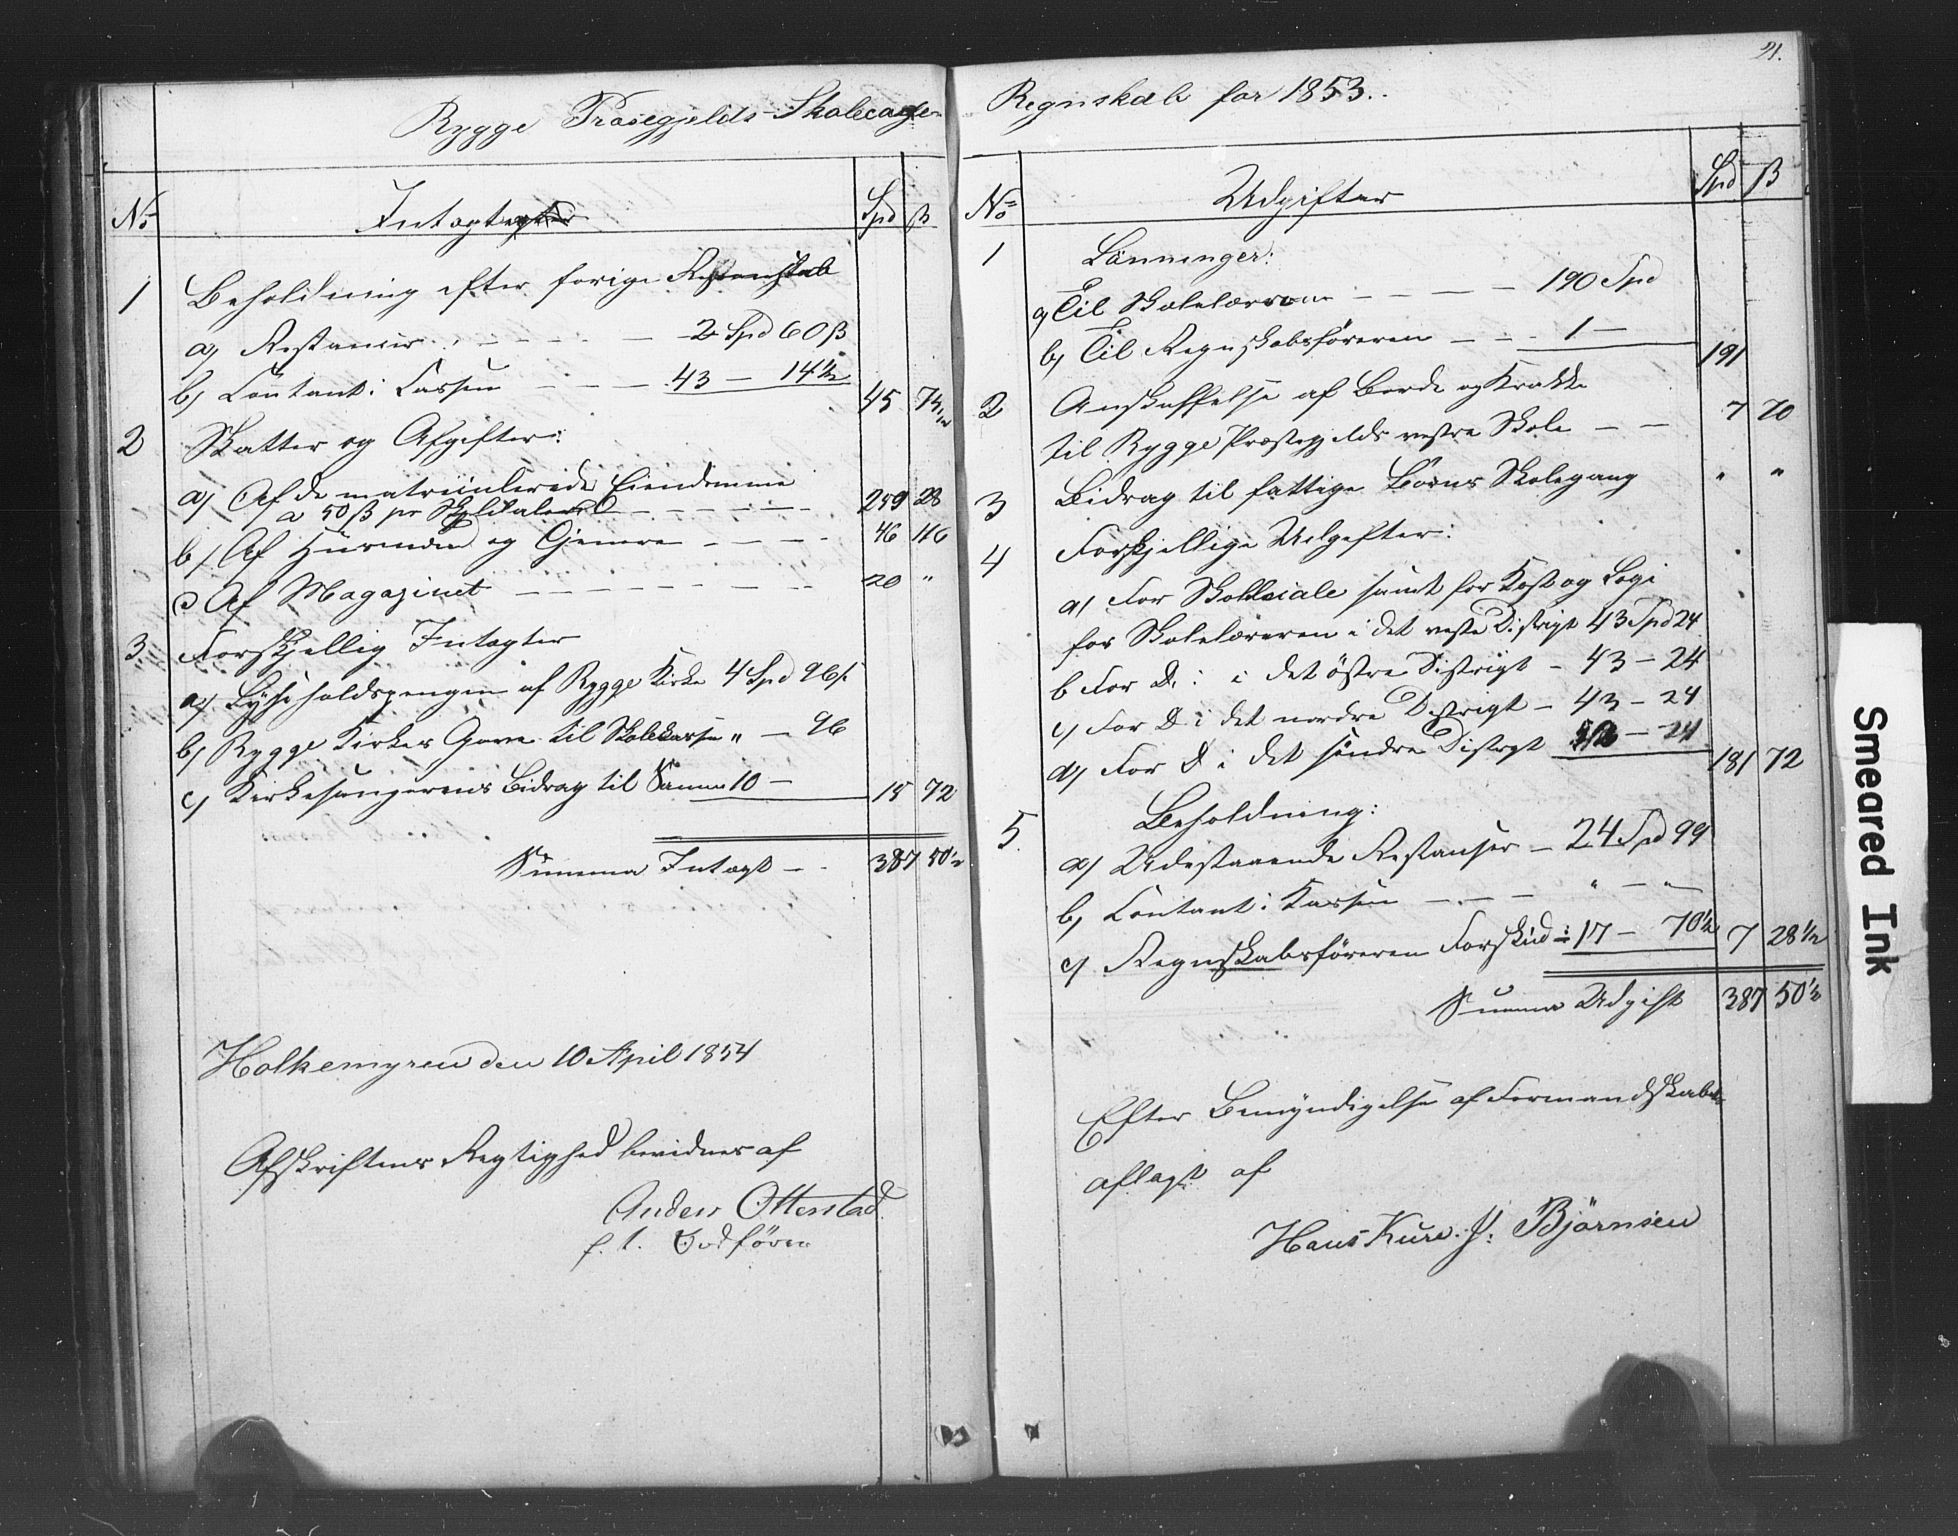 Rygge Præstegjelds Skolecasse-
No
Indtægter
Spd ß
1 Beholdning efter forige Regnskab
a) Restancer - - - 2 Spd 60 ß
b) Contant i Cassen - - - 43 - 14½ 45 74½
2 Skatter og Afgifter:
a) Af de matriculerede Eiendomme
a 50 ß pr Skylddaler - - - 259 28
b) Af Husmænd og Tjenere - - - 46 116
c) Af Magazinet - - - 20 "
3 Forskjellig Indtægter
a) Lyseholdspengen af Rygge Kirke 4 Spd 96 ß
b) Rygge Kirkes Gave til Skolekassen " - 96
c) Kirkesangerens Bidrag til Samme 10 - 15 72
Summa Indtægt - - 387 50½
Holkemyren den 10 April 1854
Afskriftens Rigtighed bevidnes af
Anders Otterstad
f. t. Ordfører
21.
Regnskab for 1853.
No
Udgifter
Spd ß
1 Lønninger:
a) Til Skolelærerne - - - 190 Spd
b) Til Regnskabsføreren - - - 1 - 191
2 Anskaffelse af Borde og Krakke
til Rygge Præstegjelds vestre Skole - - 7 70
3 Bidrag til fattige Børns Skolegang " "
4 Forskjellige Udgifter:
a) For Skolelocale samt for Kost og Logi
for Skolelæreren i det vestre Distrigt 43 Spd 24
b For Do i det østre Distrigt - 43 - 24
c) For Do i det nordre Distrigt - 43 - 24
d) For Do i det søndre Distrigt - 24 181 72
5 Beholdning:
a) Udestaaende Restanser - 24 Spd 99
b) Contant i Kassen - - - " - "
c) Regnskabsføreren Forskud ÷ 17 - 70½ 7 28½
Summa Udgift 387 50½
Efter Bemyndigelse af Formandskabet
aflagt af
Hans Kure. J. Björnsen
Smeared Ink